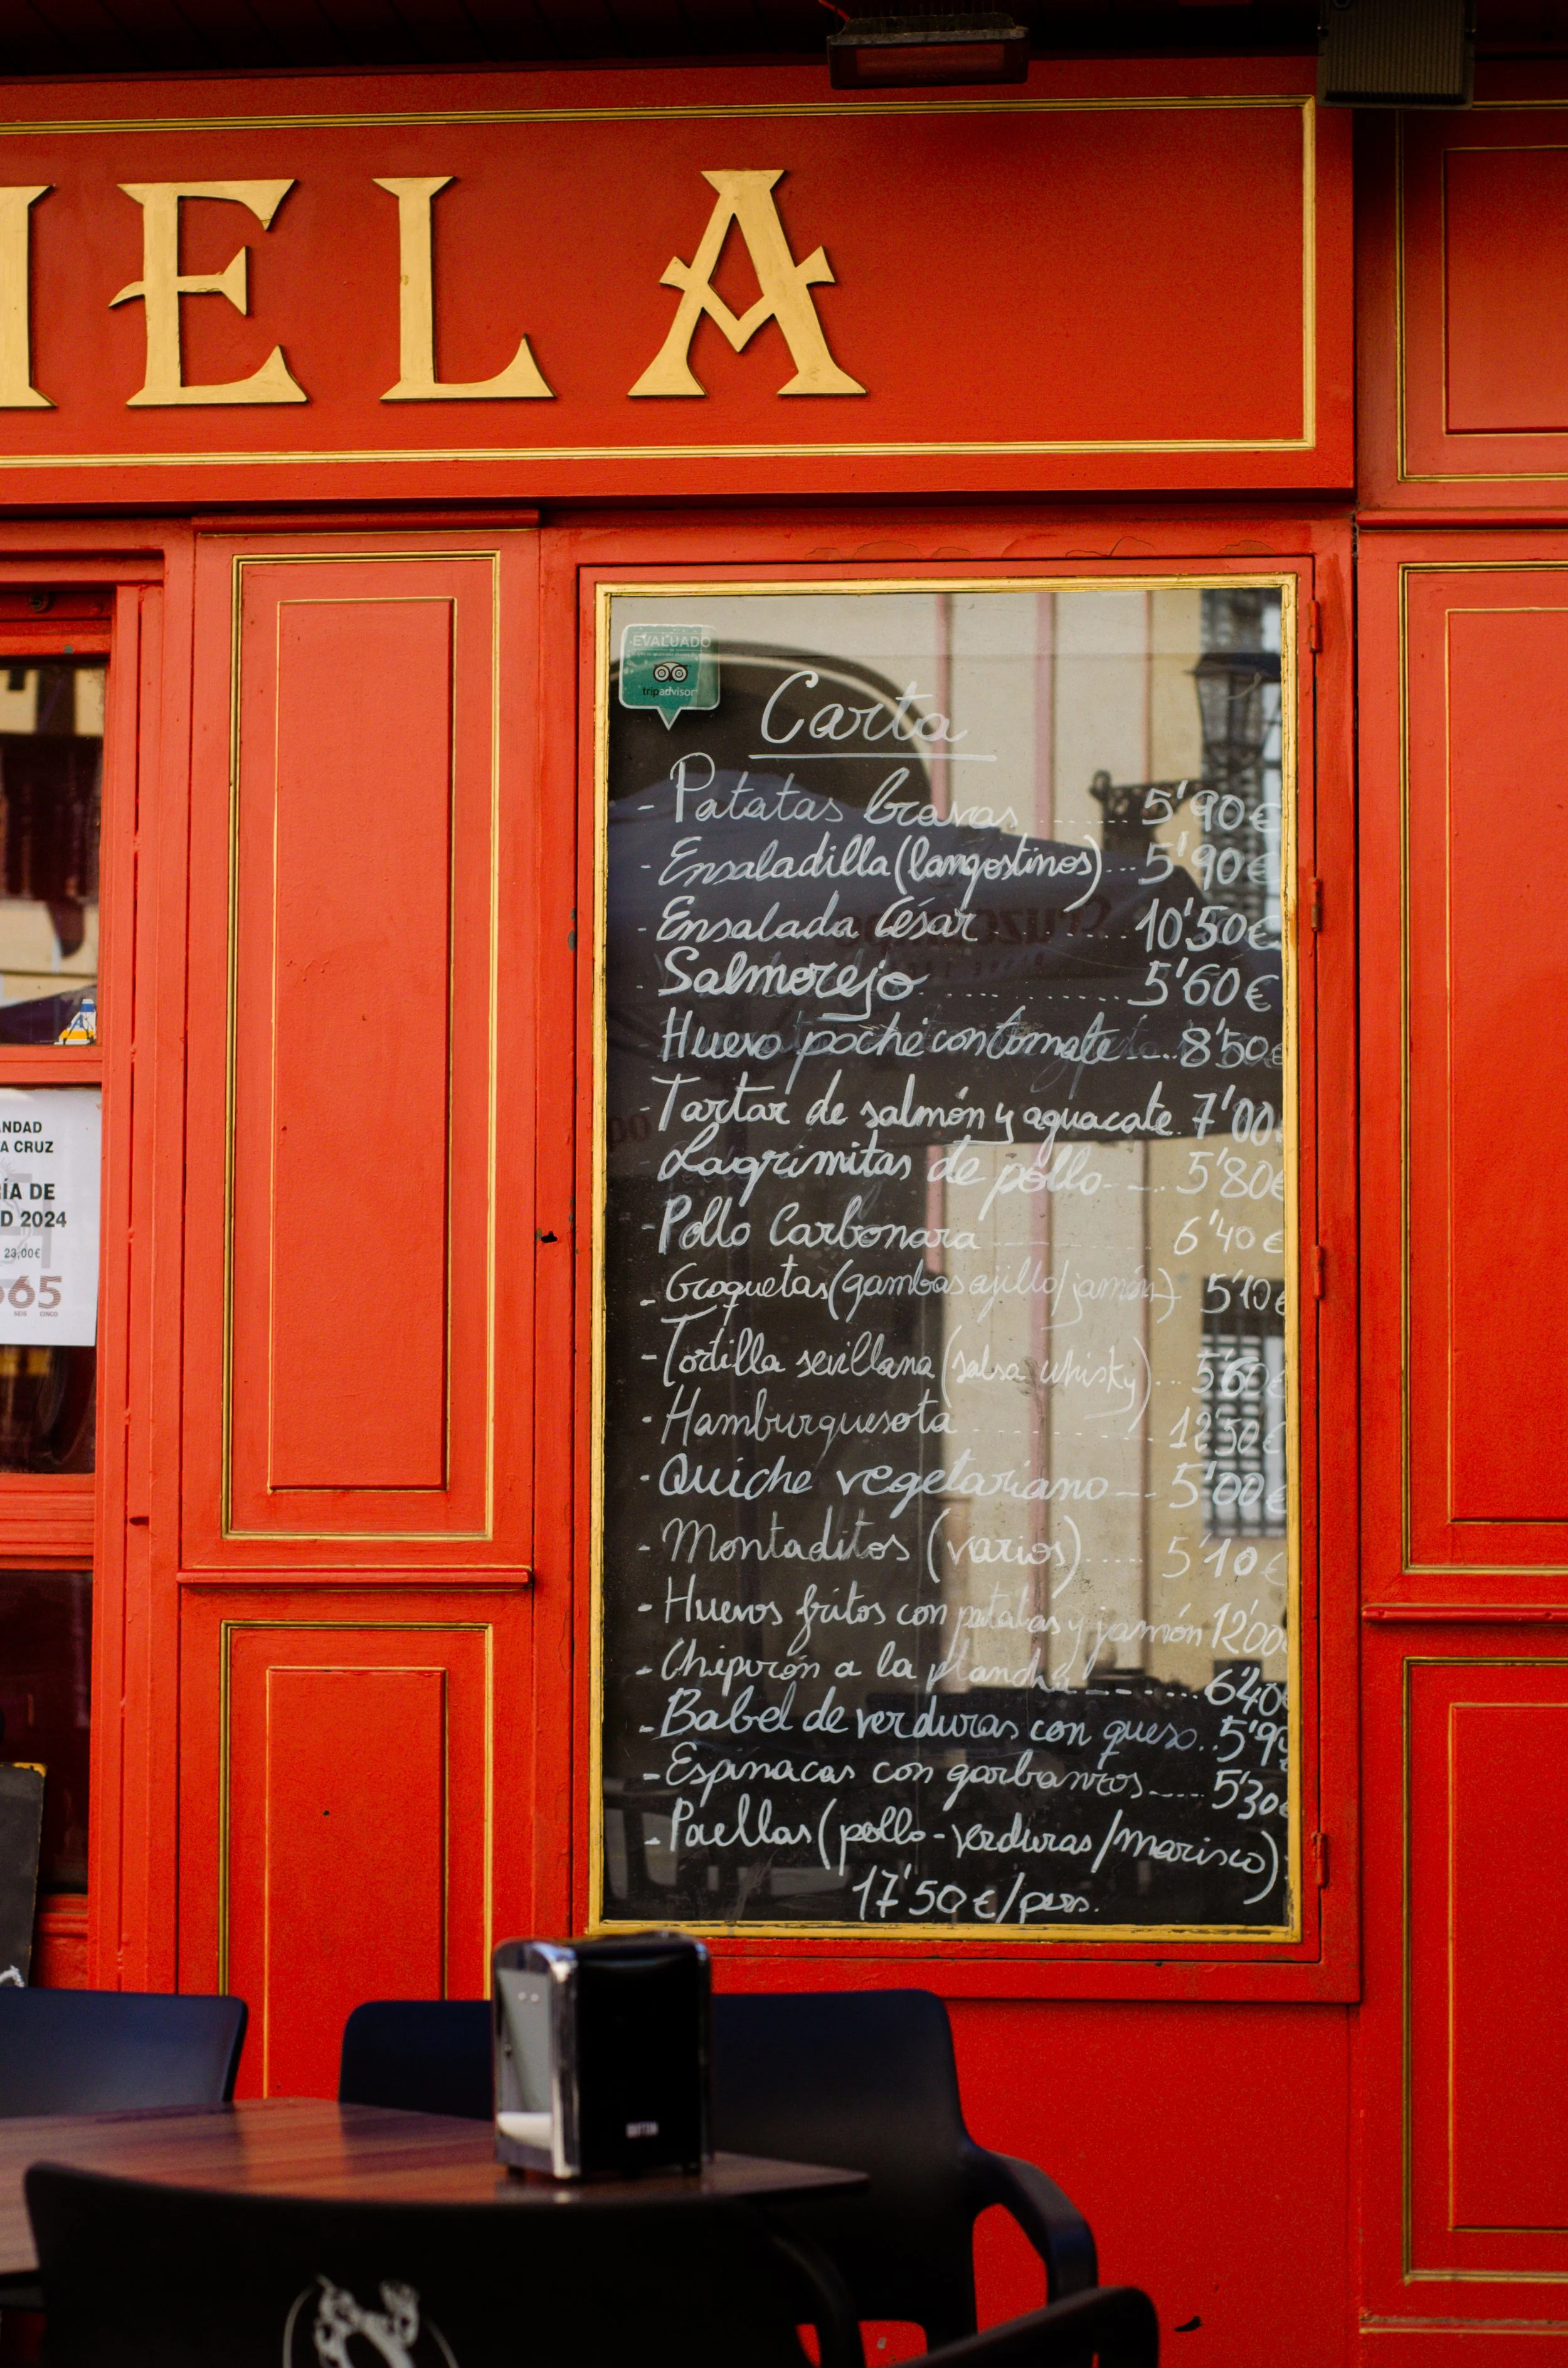 ELA
EVALUADO
tripadvisor
Carta
- Patatas bravas ........ 5'90€
- Ensaladilla (langostinos)... 5'90€
- Ensalada César ........ 10'50€
- Salmorejo ............ 5'60€
- Huevo poché con tomate .... 8'50€
- Tartar de salmón y aguacate. 7'00
- Lagrimitas de pollo ---- 5'80€
- Pollo Carbonara ........ 6'40€
- Croquetas (gambas ajillo/jamón) 5'10€
- Tortilla sevillana (salsa whisky) ... 5'60€
- Hamburguesota ............ 12'50€
- Quiche vegetariano --- 5'00€
- Montaditos (varios) ..... 5'10€
- Huevos fritos con patatas y jamón 12'00
- Chipirón a la plancha ------ 6'40€
- Babel de verduras con queso .. 5'9
- Espinacas con garbanzos ---- 5'30€
- Paellas (pollo - verduras/marisco)
17'50€/pers.
ANDAD
A CRUZ
ÍA DE
D 2024
23,00€
65
SEIS CINCO